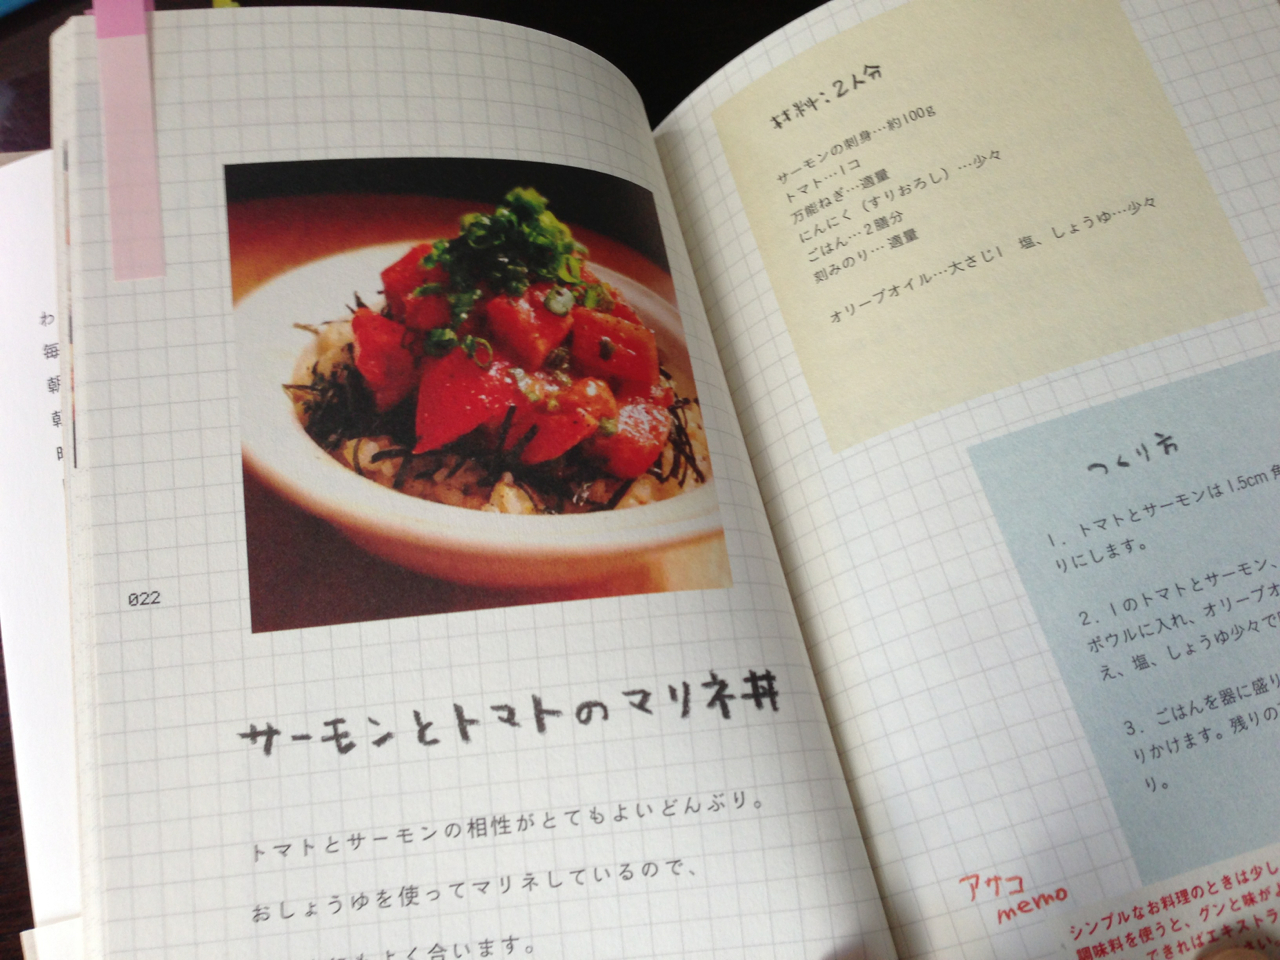 わ
毎
朝
022
サーモンとトマトのマリネ丼
トマトとサーモンの相性がとてもよいどんぶり。
おしょうゆを使ってマリネしているので、
よく合います。
材料：2人分
サーモンの刺身…約100g
トマト…1コ
万能ねぎ…適量
にんにく（すりおろし）…少々
ごはん…2膳分
刻みのり…適量
オリーブオイル…大さじ1　塩、しょうゆ…少々
つくり方
1. トマトとサーモンは1.5cm角
りにします。
2. 1のトマトとサーモン、
ボウルに入れ、オリーブオ
え、塩、しょうゆ少々で
3. ごはんを器に盛り
りかけます。残りの
り。
アサコ
memo
シンプルなお料理のときは少し
調味料を使うと、グンと味がよ
できればエキストラ